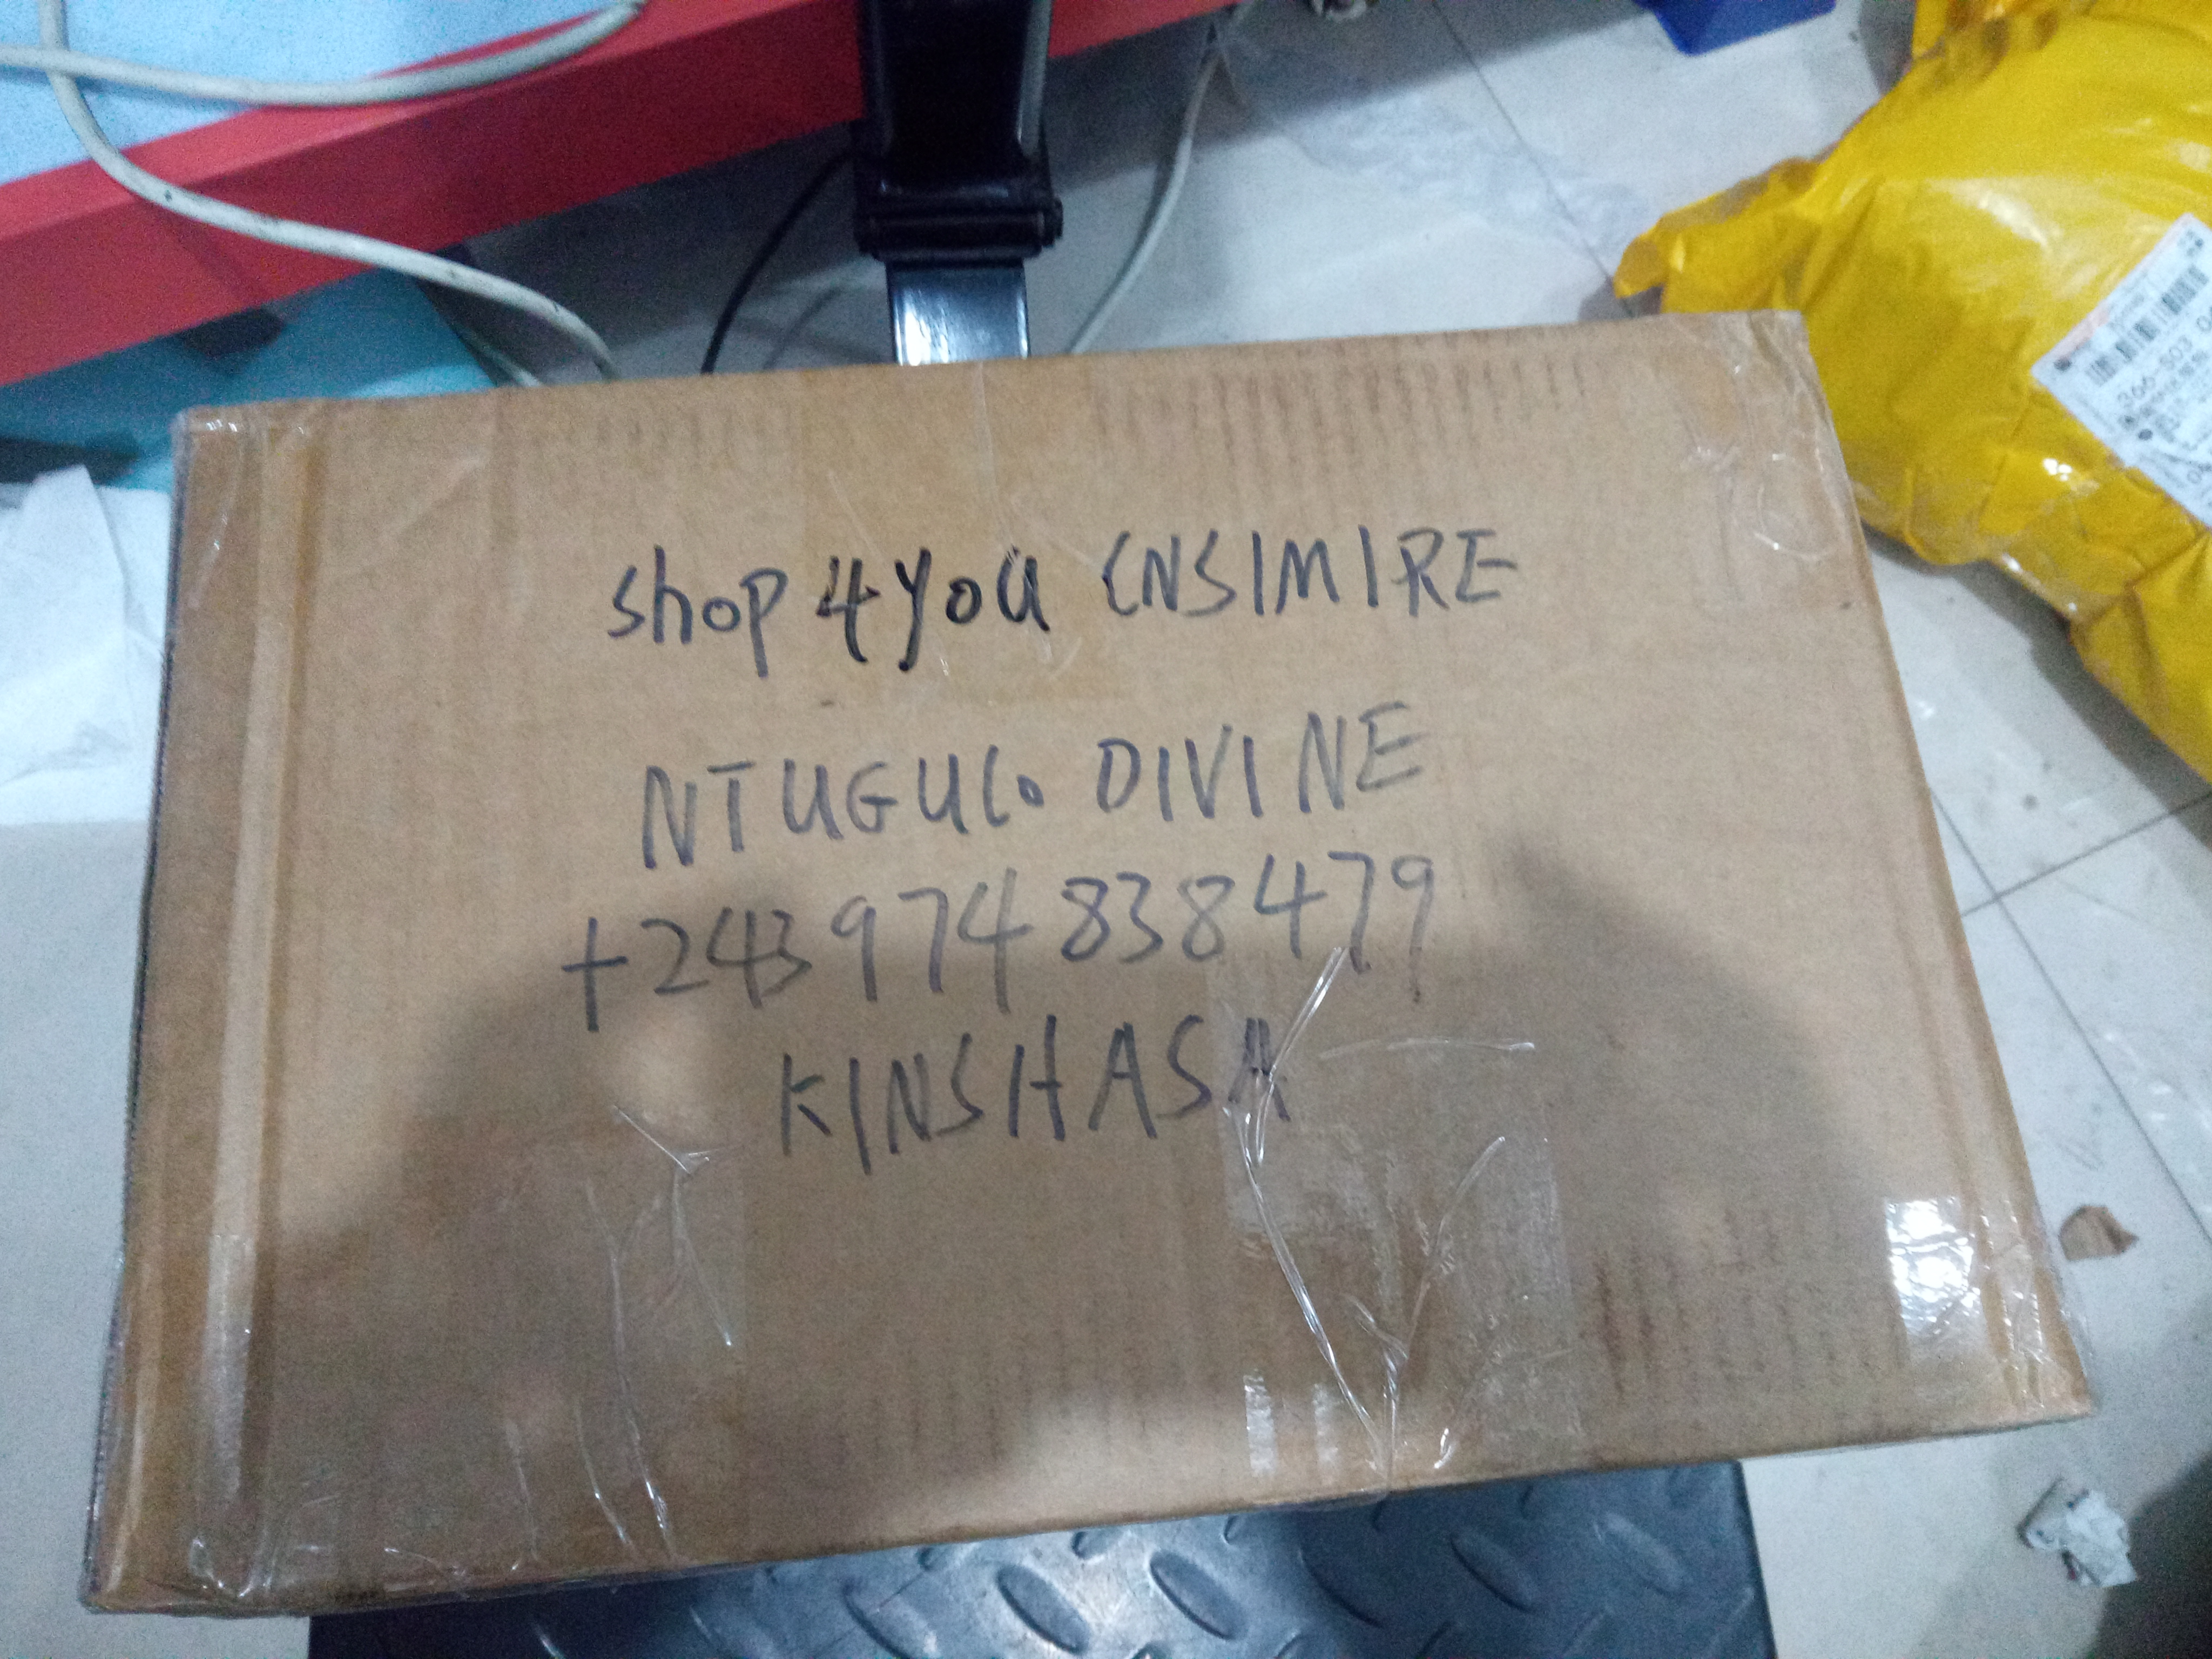 shop 4 you CNSIMIRE
NTUGULO DIVINE
+243 974 838479
KINSHASA
366-S03